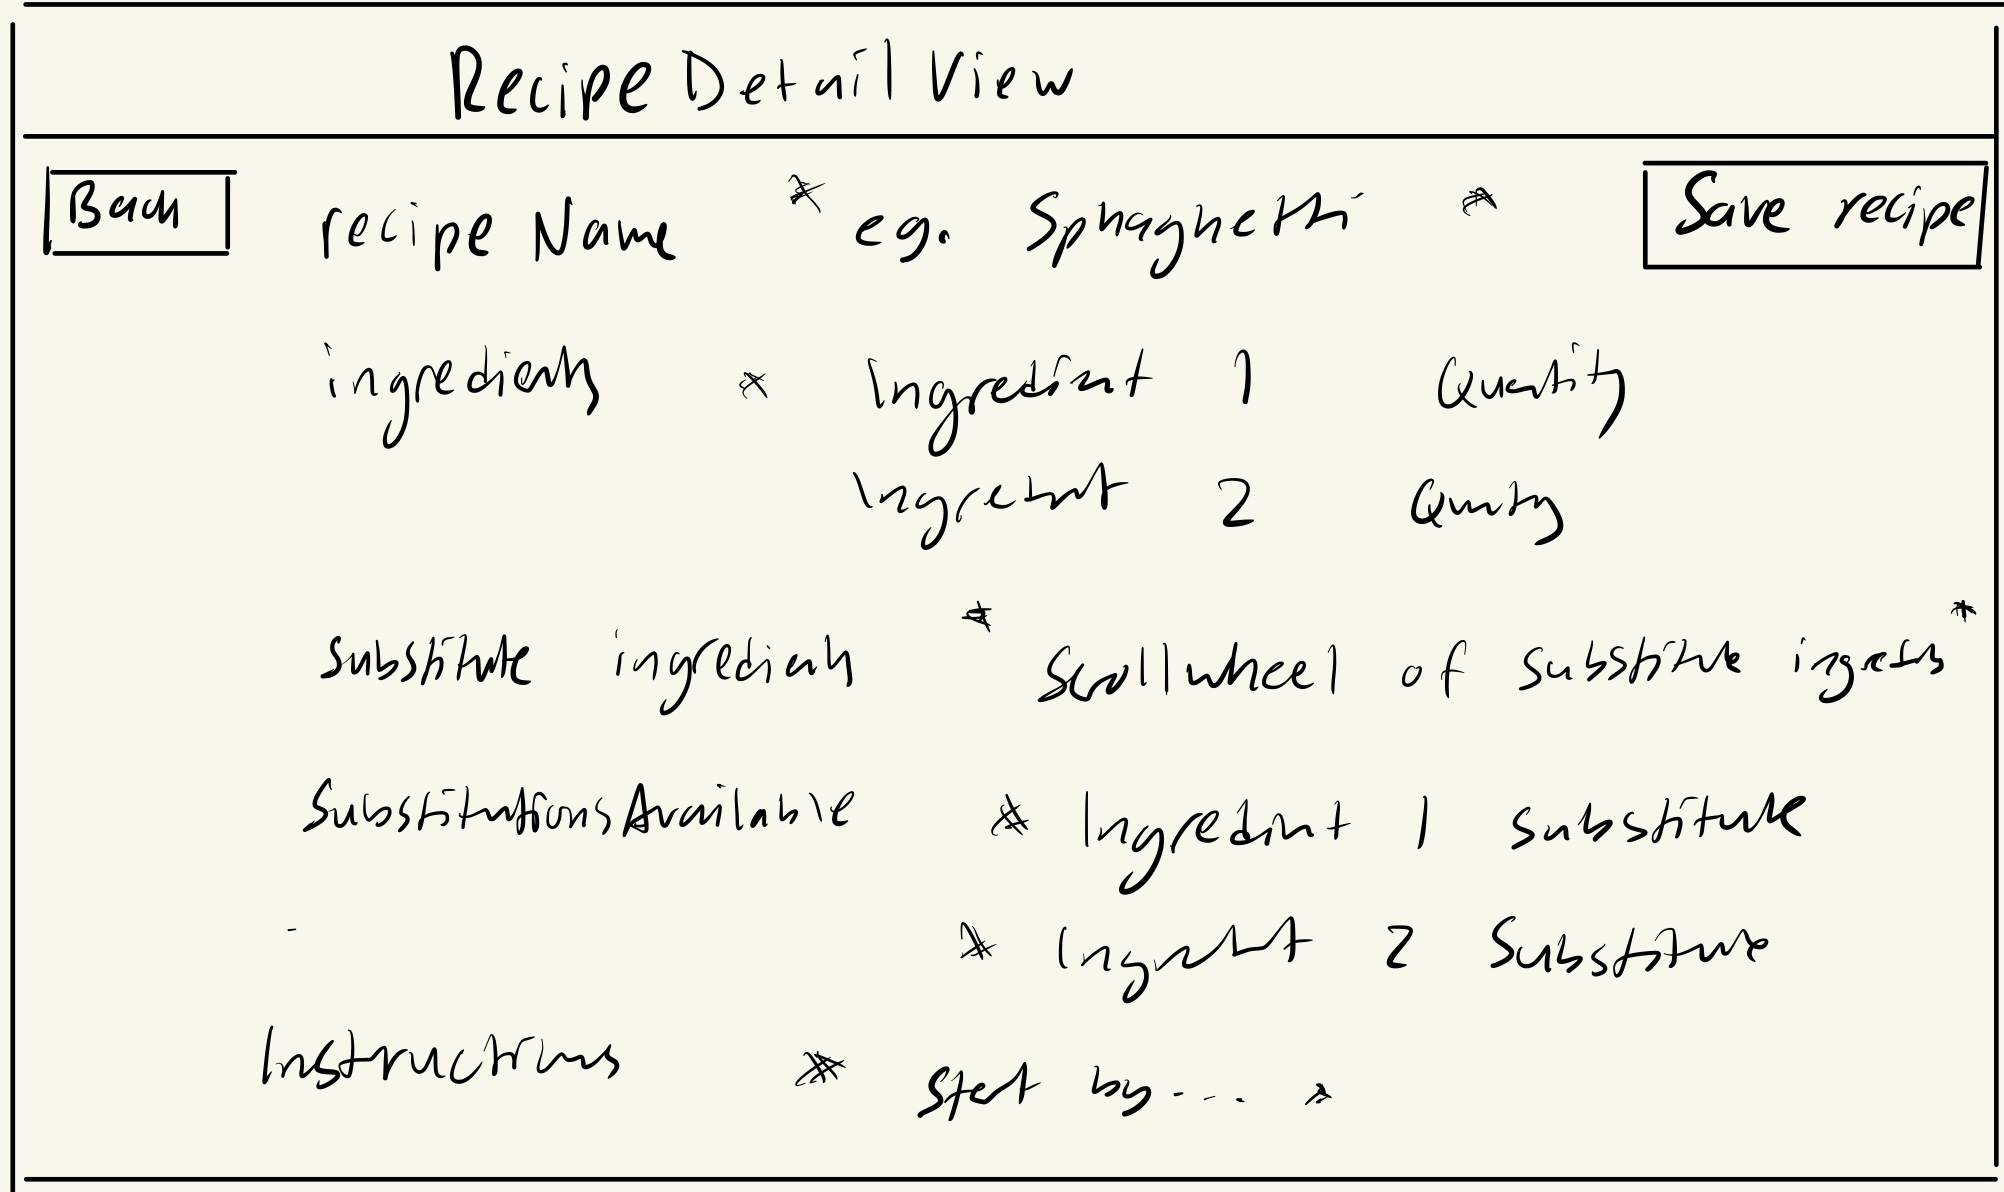 Recipe Detail View
Back recipe Name * eg. Sphaghetti * Save recipe
ingredients * Ingredient 1 Quantity
Ingredient 2 Quantity
Substitute ingredients * Scrollwheel of substitute ingredients *
SubstitutionsAvailable * Ingredient 1 substitute
* Ingredient 2 Substitute
Instructions * Start by.... *